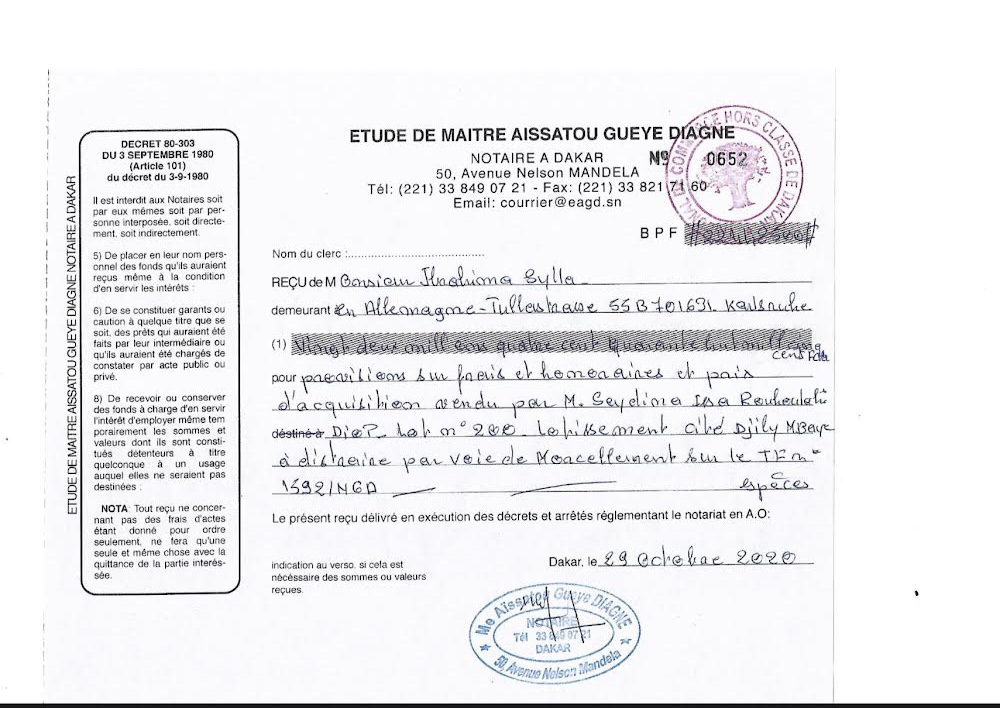 ETUDE DE MAITRE AISSATOU GUEYE DIAGNE NOTAIRE A DAKAR
DECRET 80-303
DU 3 SEPTEMBRE 1980
(Article 101)
du décret du 3-9-1980
Il est interdit aux Notaires soit
par eux mêmes soit par per-
sonne interposée, soit directe-
ment, soit indirectement.
5) De placer en leur nom pers-
onnel des fonds qu'ils auraient
reçus même à la condition
d'en servir les intérêts :
6) De se constituer garants ou
caution à quelque titre que se
soit, des prêts qui auraient été
faits par leur intermédiaire ou
qu'ils auraient été chargés de
constater par acte public ou
privé.
8) De recevoir ou conserver
des fonds à charge d'en servir
l'intérêt d'employer même tem
porairement les sommes et
valeurs dont ils sont consti-
tués détenteurs à titre
quelconque à un usage
auquel elles ne seraient pas
destinées :
NOTA: Tout reçu ne concer-
nant pas des frais d'actes
étant donné pour ordre
seulement, ne fera qu'une
seule et même chose avec la
quittance de la partie intéres-
sée.
ETUDE DE MAITRE AISSATOU GUEYE DIAGNE
NOTAIRE A DAKAR
Nº 0652
50, Avenue Nelson MANDELA
Tél: (221) 33 849 07 21 - Fax: (221) 33 821 71 60
Email: courrier@eagd.sn
HORS CLASSE DE DAKAR
B P F
Nom du clerc :
REÇU de M Monsieur Ibrahima Sylla
demeurant en Allemagne-Tullastrasse 55 B 701631. Kalsruhe
(1) Vingt deux mill ons quatre cent quarante huit mill cinq
cents Fcfa
pour provisions sur frais et honoraires et prix
d'acquisition vendu par M. Seydina Issa Rouhoulahi
destiné à Diop. Lot n° 200 Lotissement cité Djily MBaye
à distraire par voie de Morcellement sur le TF n°
1592/NGA espèces
Le présent reçu délivré en exécution des décrets et arrêtés réglementant le notariat en A.O:
indication au verso, si cela est
nécéssaire des sommes ou valeurs
reçues.
Dakar, le 29 Octobre 2020
Me Aïssatou Gueye DIAGNE
NOTAIRE
Tél 33 849 07 21
DAKAR
50, Avenue Nelson Mandela